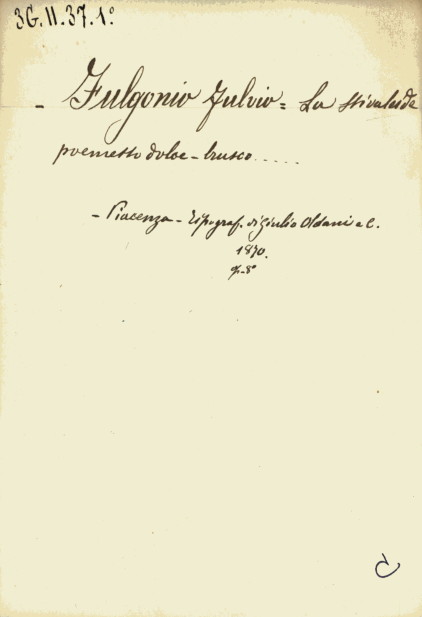 3G.II.37.1º
- Fulgonio Fulvio = La Stivaleide
poemetto dolce-brusco.....
- Piacenza - Tipograf. di Giulio Oldani e C.
1870.
8º
C